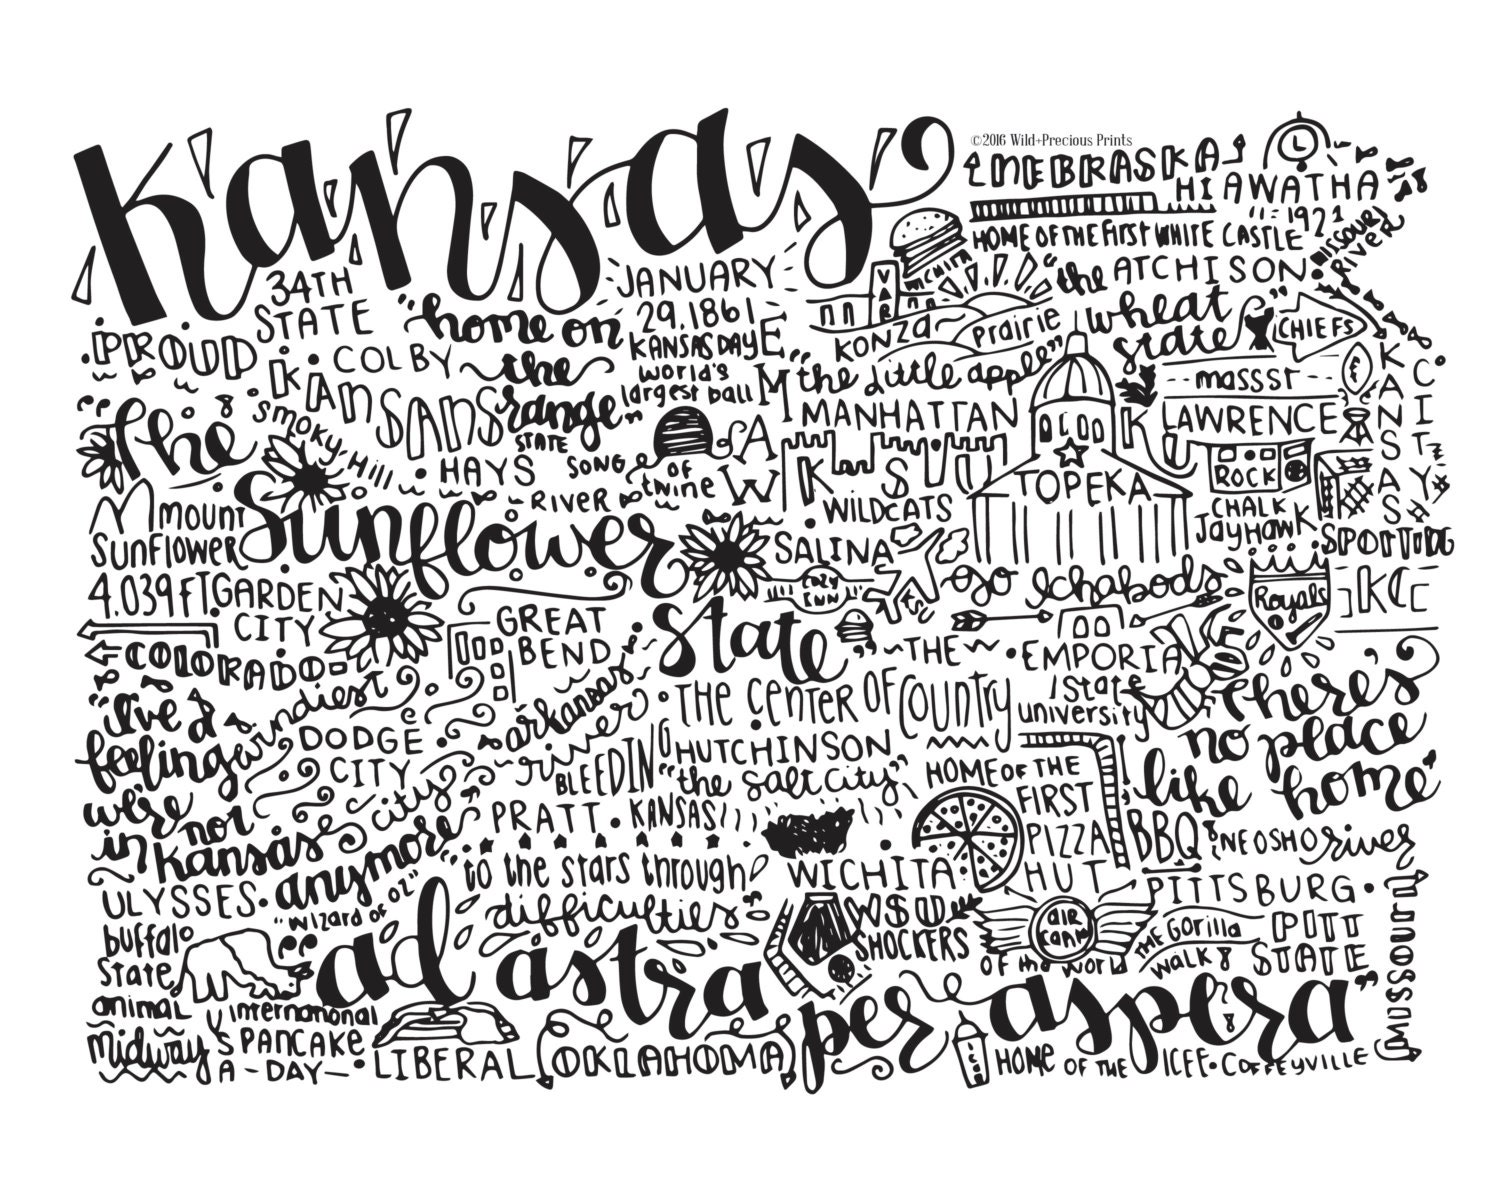 Kansas
©2016 Wild+Precious Prints
NEBRASKA
HIAWATHA
1921
HOME OF THE FIRST WHITE CASTLE
MISSOURI
RIVER
34TH
STATE
PROUD
KANSANS
COLBY
"home on
the
range"
STATE
SONG
JANUARY
29.1861
KANSAS DAY
WORLD'S
largest ball
OF
twine
WICHITA
KONZA
Prairie
"the
ATCHISON
wheat
state"
CHIEFS
"the little apple"
MANHATTAN
EMAW
KSU
WILDCATS
TOPEKA
KU
massst
LAWRENCE
ROCK
CHALK
Jayhawk
KANSAS
CITY
SPORTING
KC
Royals
"The
Sunflower
State"
SMOKY Hill
RIVER
HAYS
mount
Sunflower
4.039 FT.
GARDEN
CITY
COLORADO
SALINA
COZY
INN
go Ichabods
GREAT
BEND
~THE~
EMPORIA
State
university
ESU
"there's
no place
like home"
"i've a
feeling
we're
not
in
Kansas
anymore"
"WIZARD OF OZ"
windiest
city
DODGE
CITY
arkansas
river
THE CENTER OF
COUNTRY
HUTCHINSON
"the salt city"
BLEEDING
KANSAS
PRATT
HOME OF THE
FIRST
PIZZA
HUT
BBQ
NEOSHO river
ULYSSES
"to the stars through
difficulties"
WICHITA
WSU
SHOCKERS
AIR
CAPITAL
OF THE WORLD
PITTSBURG
THE Gorilla
walk
PITT
STATE
MISSOURI
buffalo
State
animal
midway
USA
"ad astra
per aspera"
International
PANCAKE
DAY
LIBERAL
OKLAHOMA
ICEE
HOME OF THE ICEE
COFFEYVILLE